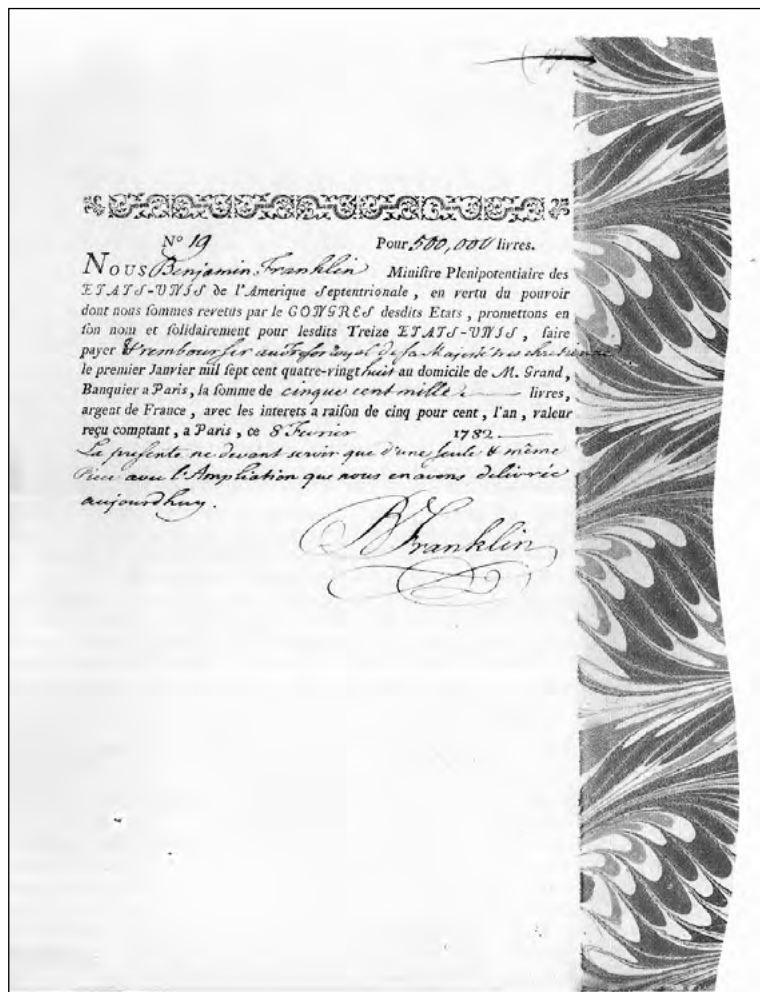 N° 19 Pour 500,000 livres.
NOUS Benjamin Franklin Ministre Plenipotentiaire des
ETATS-UNIS de l'Amerique Septentrionale, en vertu du pouvoir
dont nous sommes revetus par le CONGRES desdits Etats, promettons en
son nom et solidairement pour lesdits Treize ETATS-UNIS, faire
payer & rembourser au Tresor royal de sa Majesté tres chretienne
le premier Janvier mil sept cent quatre-vingt huit au domicile de M. Grand,
Banquier a Paris, la somme de cinque cent mille livres,
argent de France, avec les interets a raison de cinq pour cent, l'an, valeur
reçu comptant, a Paris, ce 8 Fevrier 1782
La presente ne devant servir que d'une seule & même
Piece avec l'Ampliation que nous en avons delivrée
aujourdhuy.
B Franklin